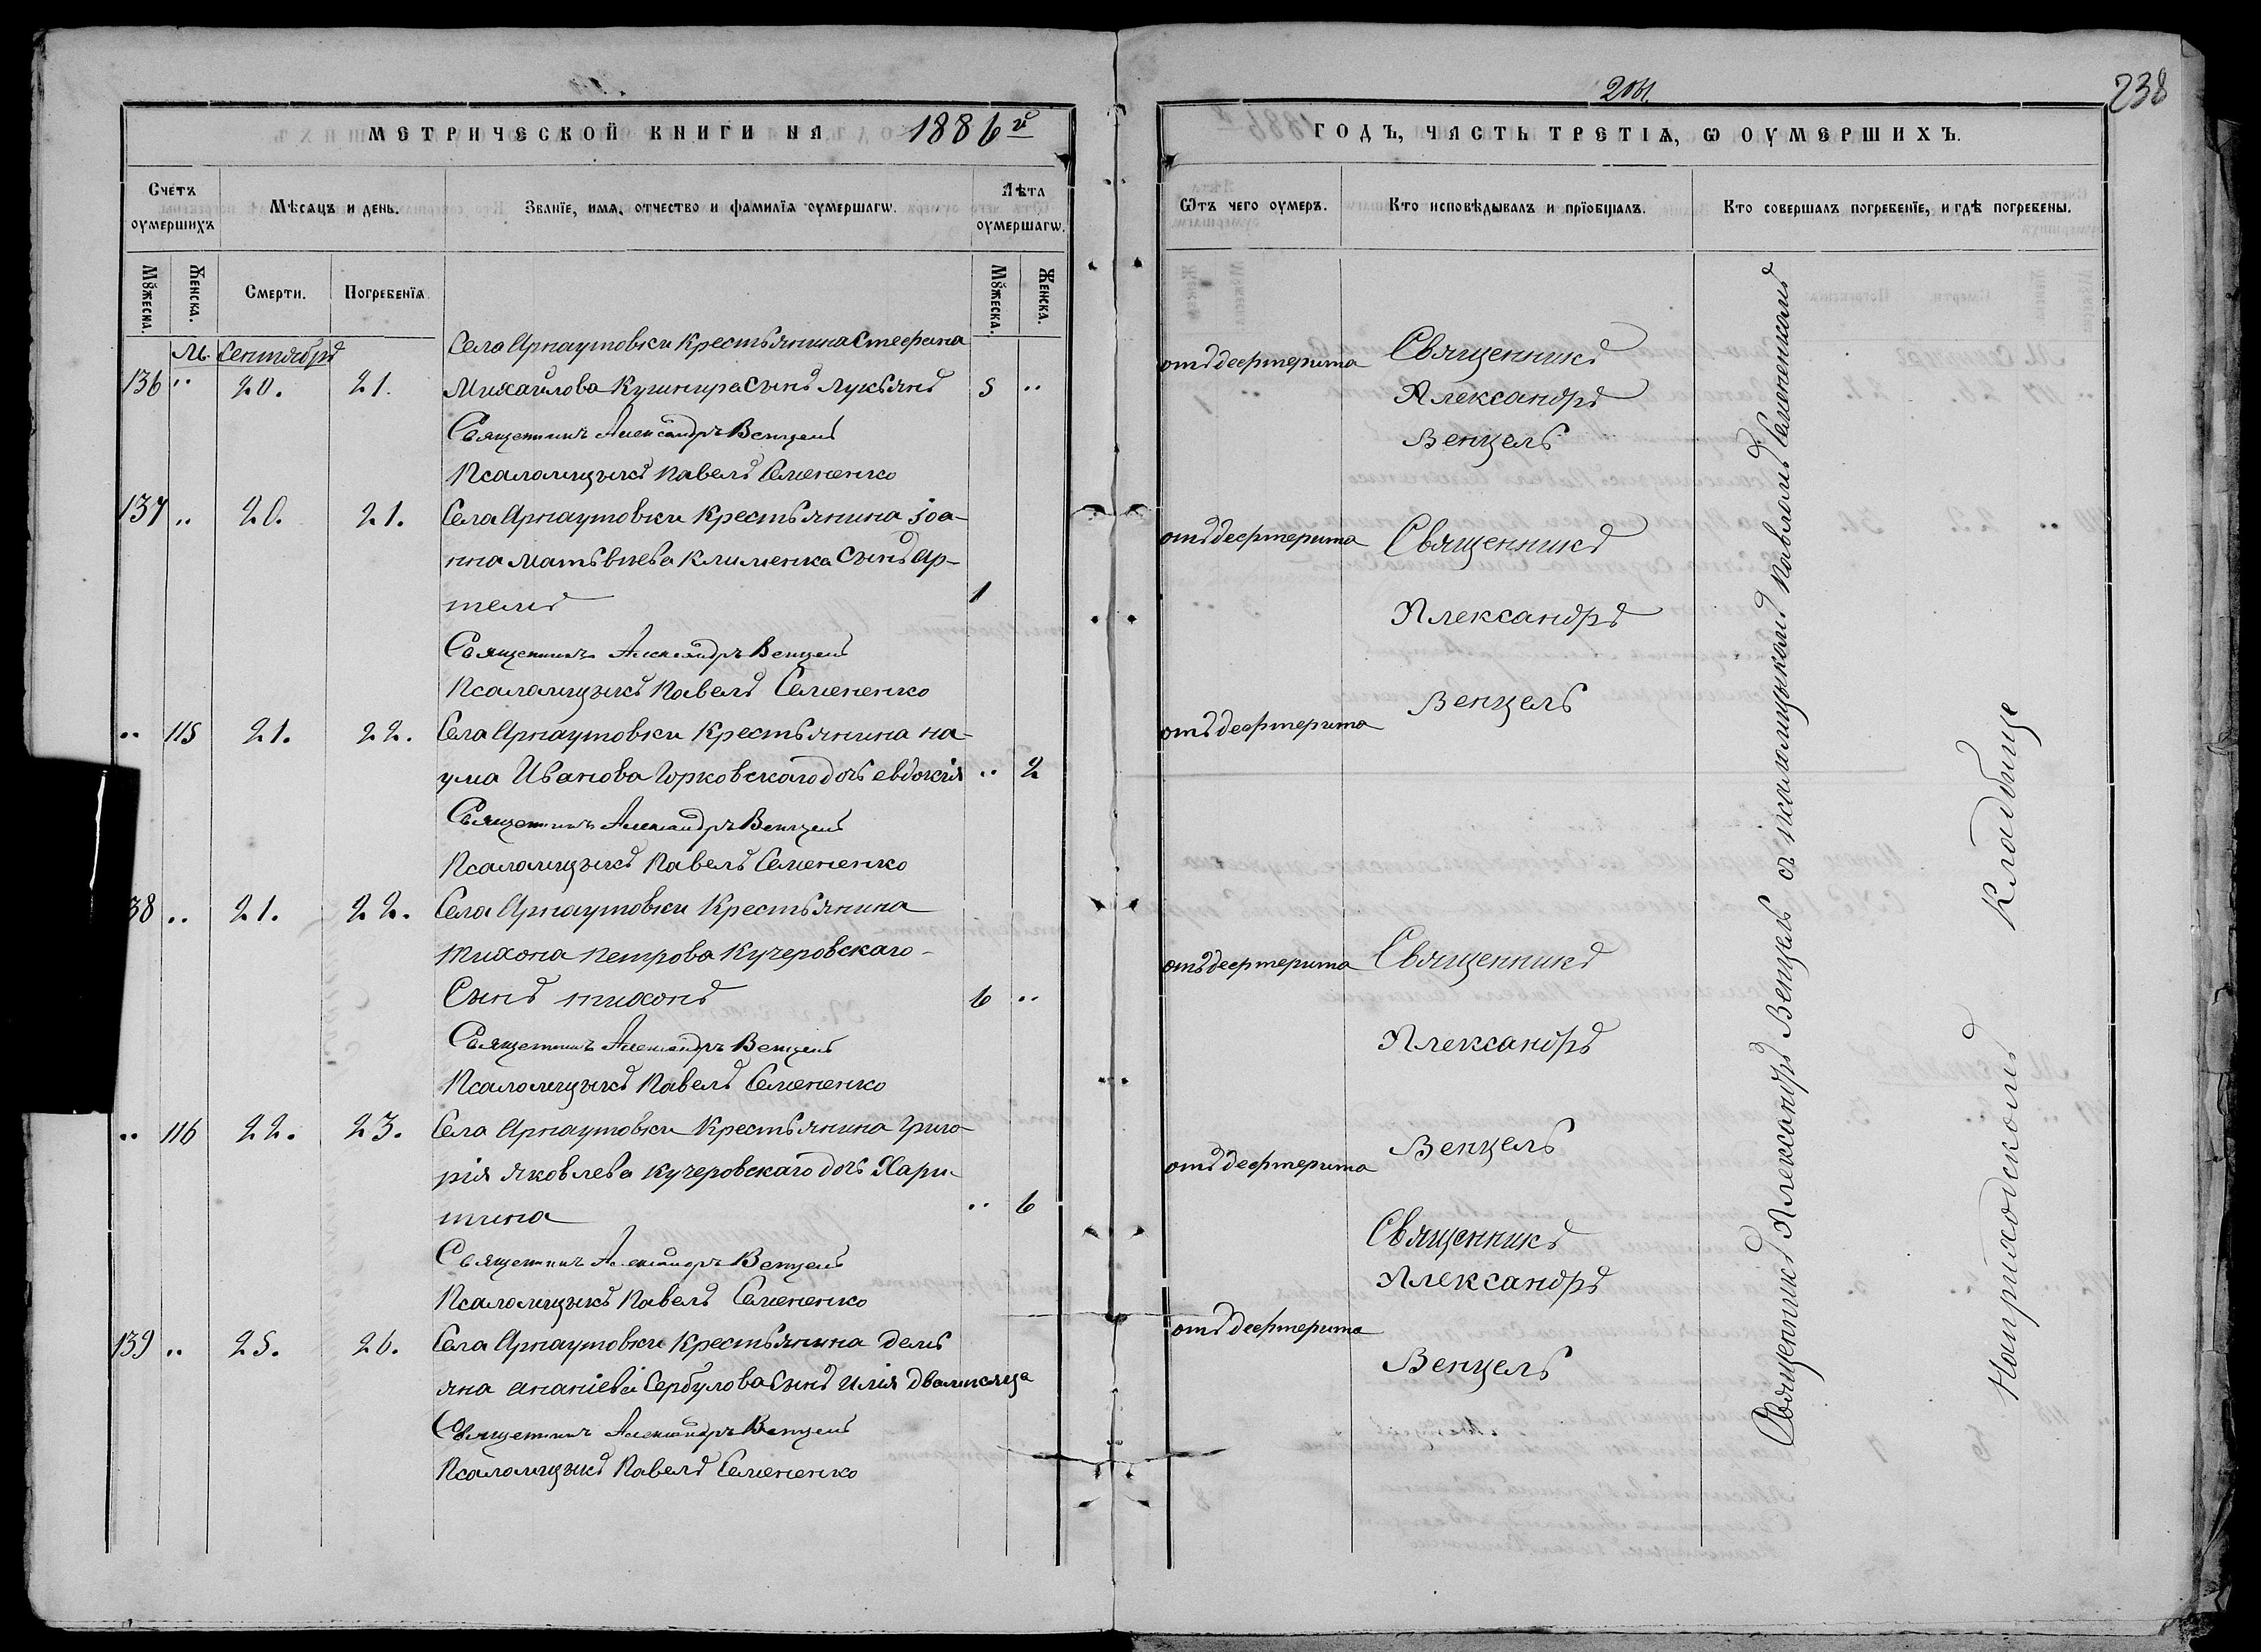 МЕТРИЧЕСКОЙ КНИГИ НА 1886й
Счетъ оумершихъ
Мѣсяцъ и день.
Званїе, имя, отчество и фамилїя оумершагѡ.
Лѣта оумершагѡ.
Мꙋжеска.
Женска.
Смерти.
Погребенїя
Мꙋжеска.
Женска.
М. Сентябрь
Села Арнаутовки Крестьянина Стефана
136 " 20. 21. Михайлова Кушнира сынъ Лукьянъ 5 "
Священникъ Александръ Венцель
Псаломщикъ Павелъ Семененко
137 " 20. 21. Села Арнаутовки Крестьянина Іоа-
нна Матвѣиева Клименка Сынъ Ар-
темъ 1
Священникъ Александръ Венцель
Псаломщикъ Павелъ Семененко
" 115 21. 22. Села Арнаутовки Крестьянина На-
ума Иванова Горковскаго дочь Евдокія " 2
Священникъ Александръ Венцель
Псаломщикъ Павелъ Семененко
38 " 21. 22. Села Арнаутовки Крестьянина
Тихона Петрова Кучеровскаго
Сынъ Тихонъ 6 "
Священникъ Александръ Венцель
Псаломщикъ Павелъ Семененко
" 116 22. 23. Села Арнаутовки Крестьянина Григо-
рія Яковлева Кучеровскаго дочь Хари-
тина " 6
Священникъ Александръ Венцель
Псаломщикъ Павелъ Семененко
139 " 25. 26. Села Арнаутовки Крестьянина Демь
яна Ананіева Сербулова Сынъ Илія два месяца
Священникъ Александръ Венцель
Псаломщикъ Павелъ Семененко
238
ГОДЪ, ЧАСТЬ ТРЕТІѦ, Ѡ ОУМЕРШИХЪ.
Ѿтъ чего оумеръ.
Кто исповѣдывалъ и прїобщалъ.
Кто совершалъ погребенїе, и гдѣ погребены.
отъ дефтерита Священникъ
Александръ
Венцель
отъ дефтерита Священникъ
Александръ
Венцель
отъ дефтерита
отъ дефтерита Священникъ
Александръ
Венцель
отъ дефтерита
Священникъ
Александръ
отъ дефтерита
Венцель
Священникъ Александръ Венцель съ псаломщикомъ Павломъ Семененкомъ
На приходскомъ Кладбище